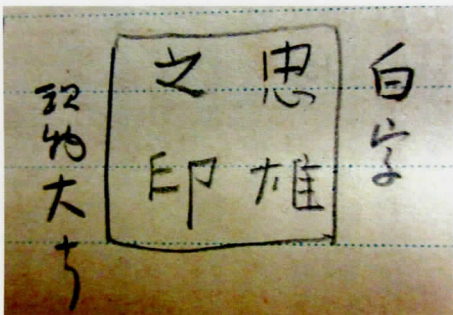 白字
忠雄
之印
現物大サ